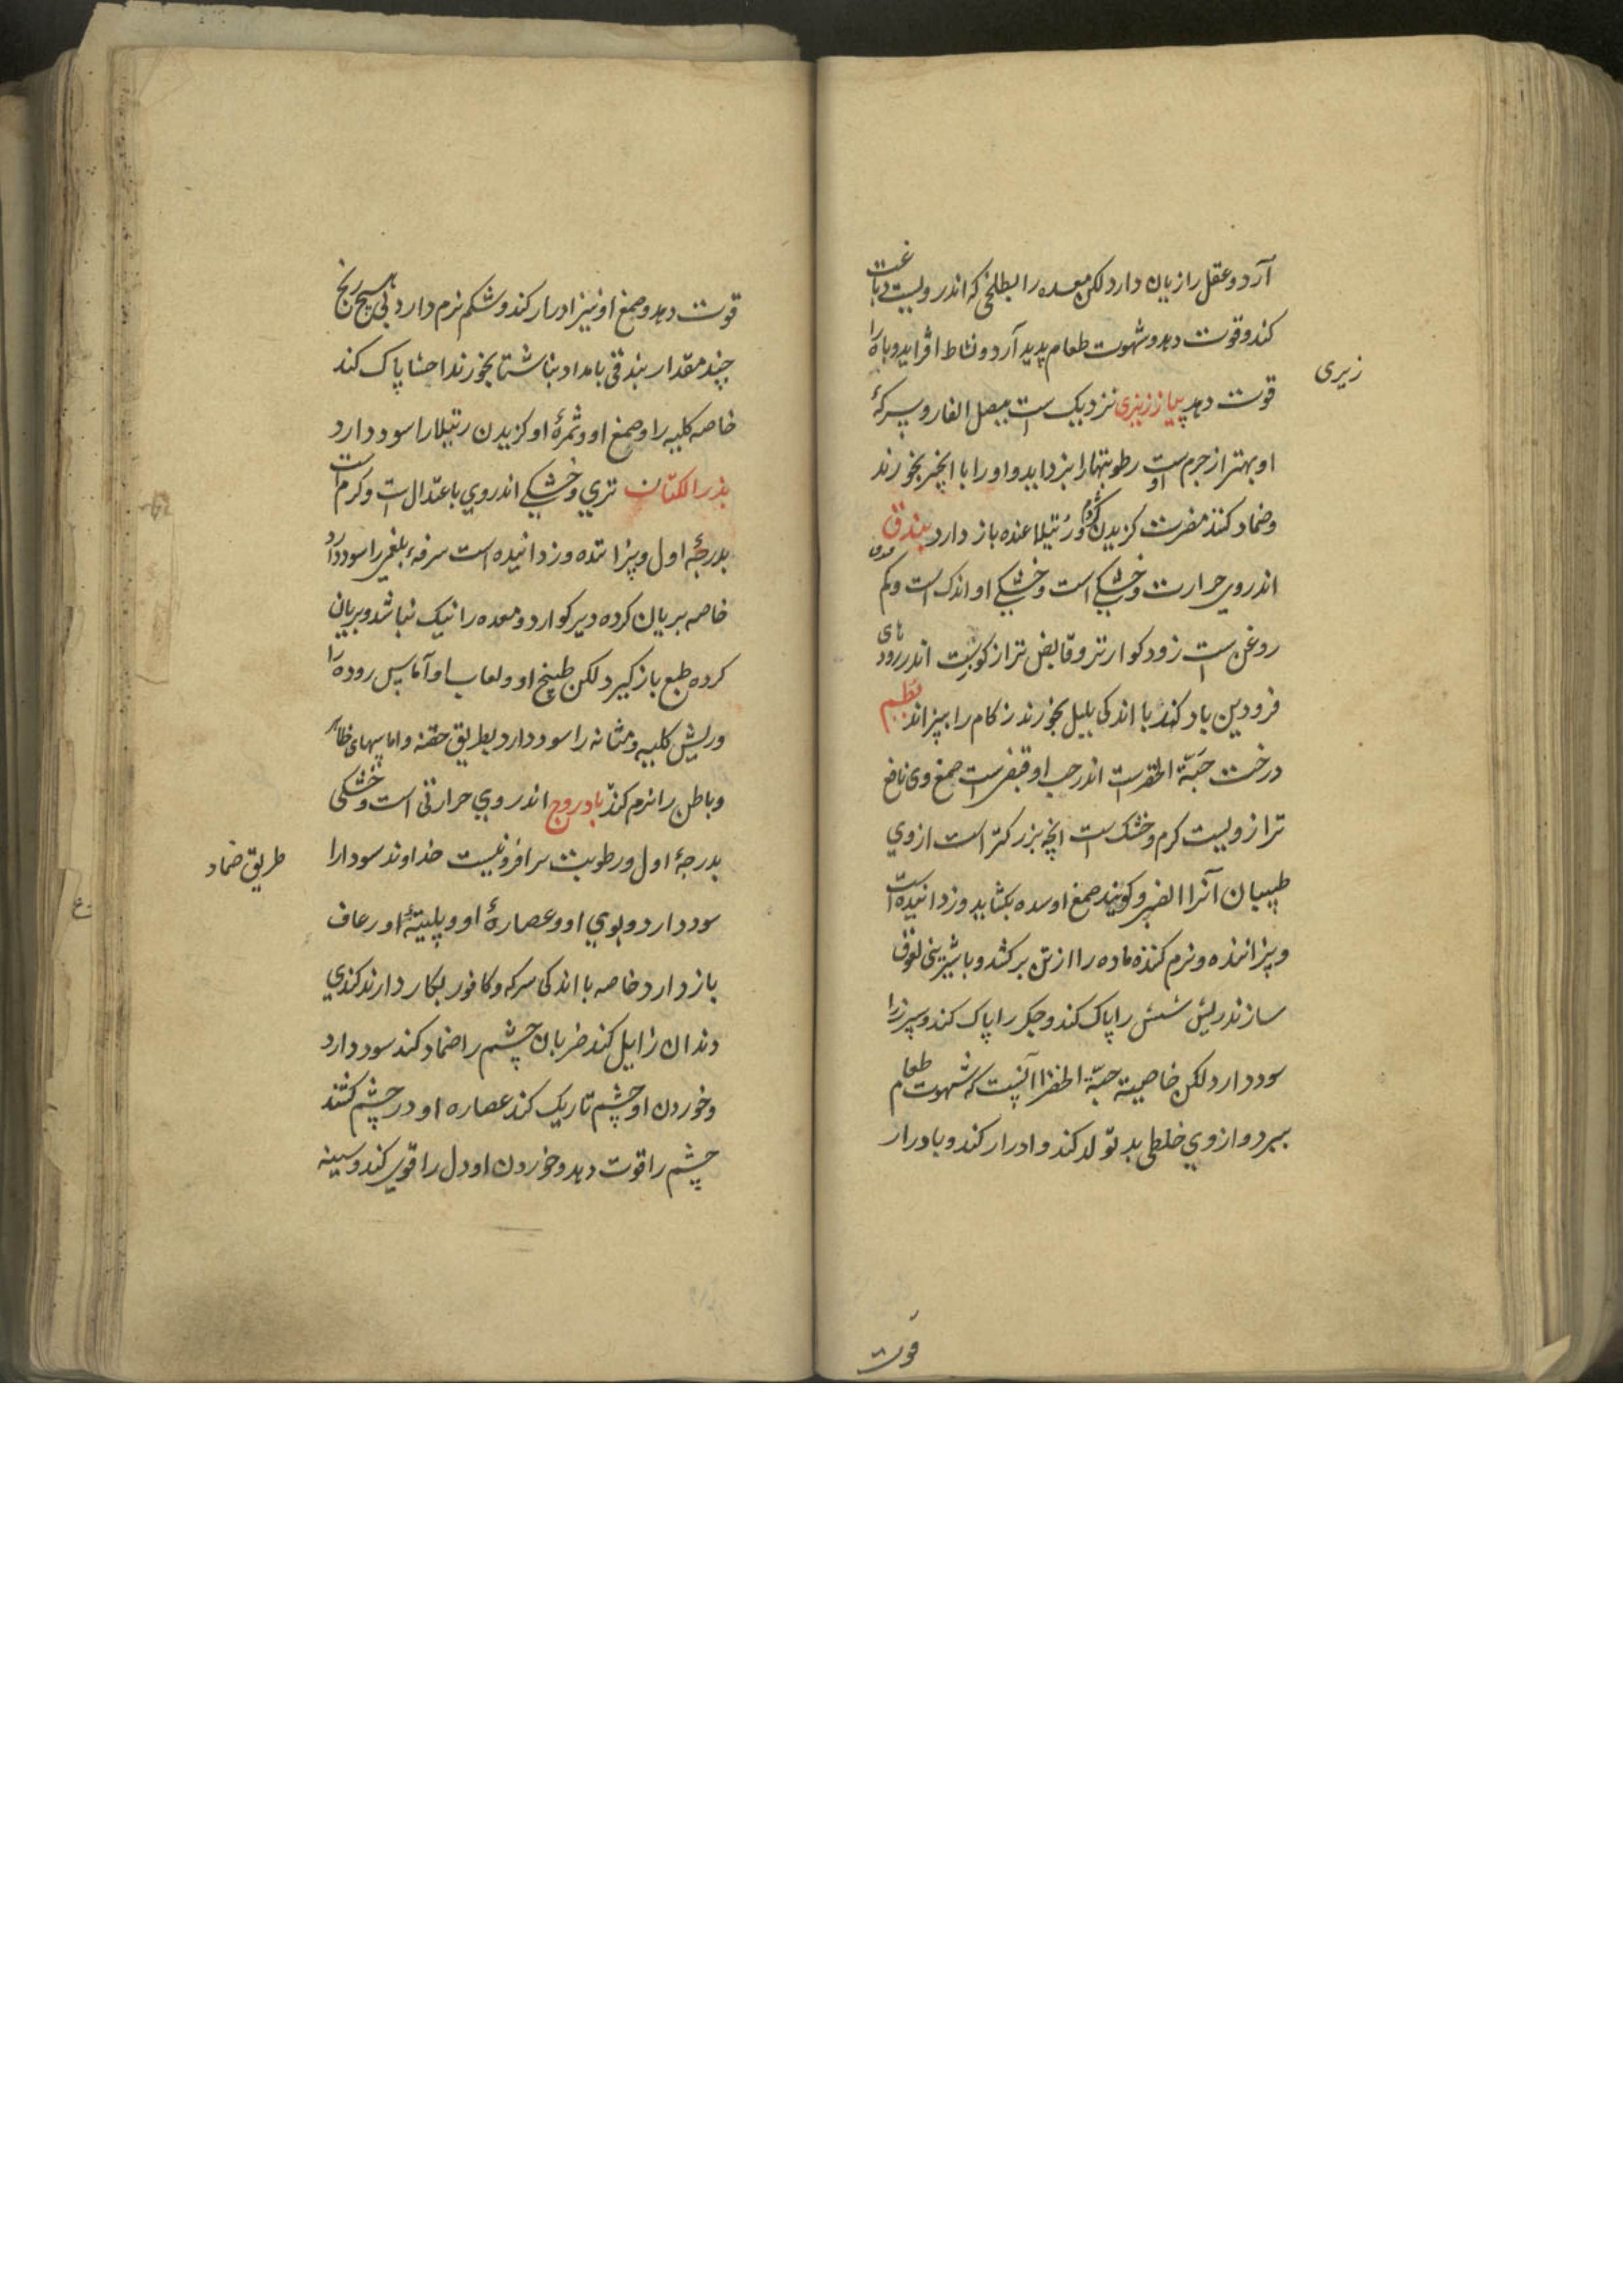 آرد و عقل را زیان دارد لکن معده را بطلخی که اندر ویست دباغت
کند و قوت دهد و شهوت طعام پدید آرد و نشاط افزاید و باه را
زیری
قوت دهد پیاز زیزی نزدیک است ببصل الفار و سرکهٔ
او بهتر از جرم اوست رطوبتها را بزداید و او را با انجیر بخورند
و ضماد کنند مضرت کزیدن کژدم و رُتیلا عنده باز دارد بندق
اندر وی حرارت و خشکی است و خشکی او اندک است و کم
روغن است زود کوارتر و قابض تر از کوزست اندر رودهای
فرودین باد کند با اندکی پلپل بخورند زکام را بپزاند بُطم
درخت حَبّة الخضراست اندر حب او قبض است صمغ وی نافع
تر از ویست کرم و خشک است انچه بزرکتر است از وي
طبیبان آنرا الضرو کویند صمغ او سده بکشاید و زدانیده است
و پزاننده و نرم کننده ماده را از تن برکشد و با شیرینی لعوق
سازند ریش شش را پاک کند و جکر را پاک کند و سپرز را
سود دارد لکن خاصیة حبّة الخضرا آنست که شهوت طعام
ببرد و از وي خلطی بد تولد کند و ادرار کند و با ادرار
قوت
قوت دهد و صمغ او نیز ادرار کند و شکم نرم دارد بی هیچ رنج
چند مقدار بندقی بامداد بناشتا بخورند احشا پاک کند
خاصه کلیه را و صمغ او و ثمرهٔ او کزیدن رتیلا را سود دارد
بذر الکتّان تري و خشکی اندروي باعتدال است و کرم است
بدرجهٔ اول و پزاننده و زدانیده است سرفهٔ بلغمی را سود دارد
خاصه بریان کرده دیر کوارد و معده را نیک نباشد و بریان
کرده طبع باز گیرد لکن طبیخ او و لعاب او آماس روده را
و ریش کلیه و مثانه را سود دارد بطریق حقنه و اماسهای ظاهر
و باطن را نرم کند بادروج اندر وي حرارتی است و خشکی
بدرجهٔ اول و رطوبت سرافزونیست خداوند سودا را
طریق ضماد
سود دارد و بوي او و عصارهٔ او و پلیتهٔ او رعاف
باز دارد خاصه با اندکی سرکه و کافور بکار دارند کندي
دندان زایل کند ضربان چشم را ضماد کند سود دارد
و خوردن او چشم تاریک کند عصاره او در چشم کشند
چشم را قوت دهد و خوردن او دل را قوي کند و سینه